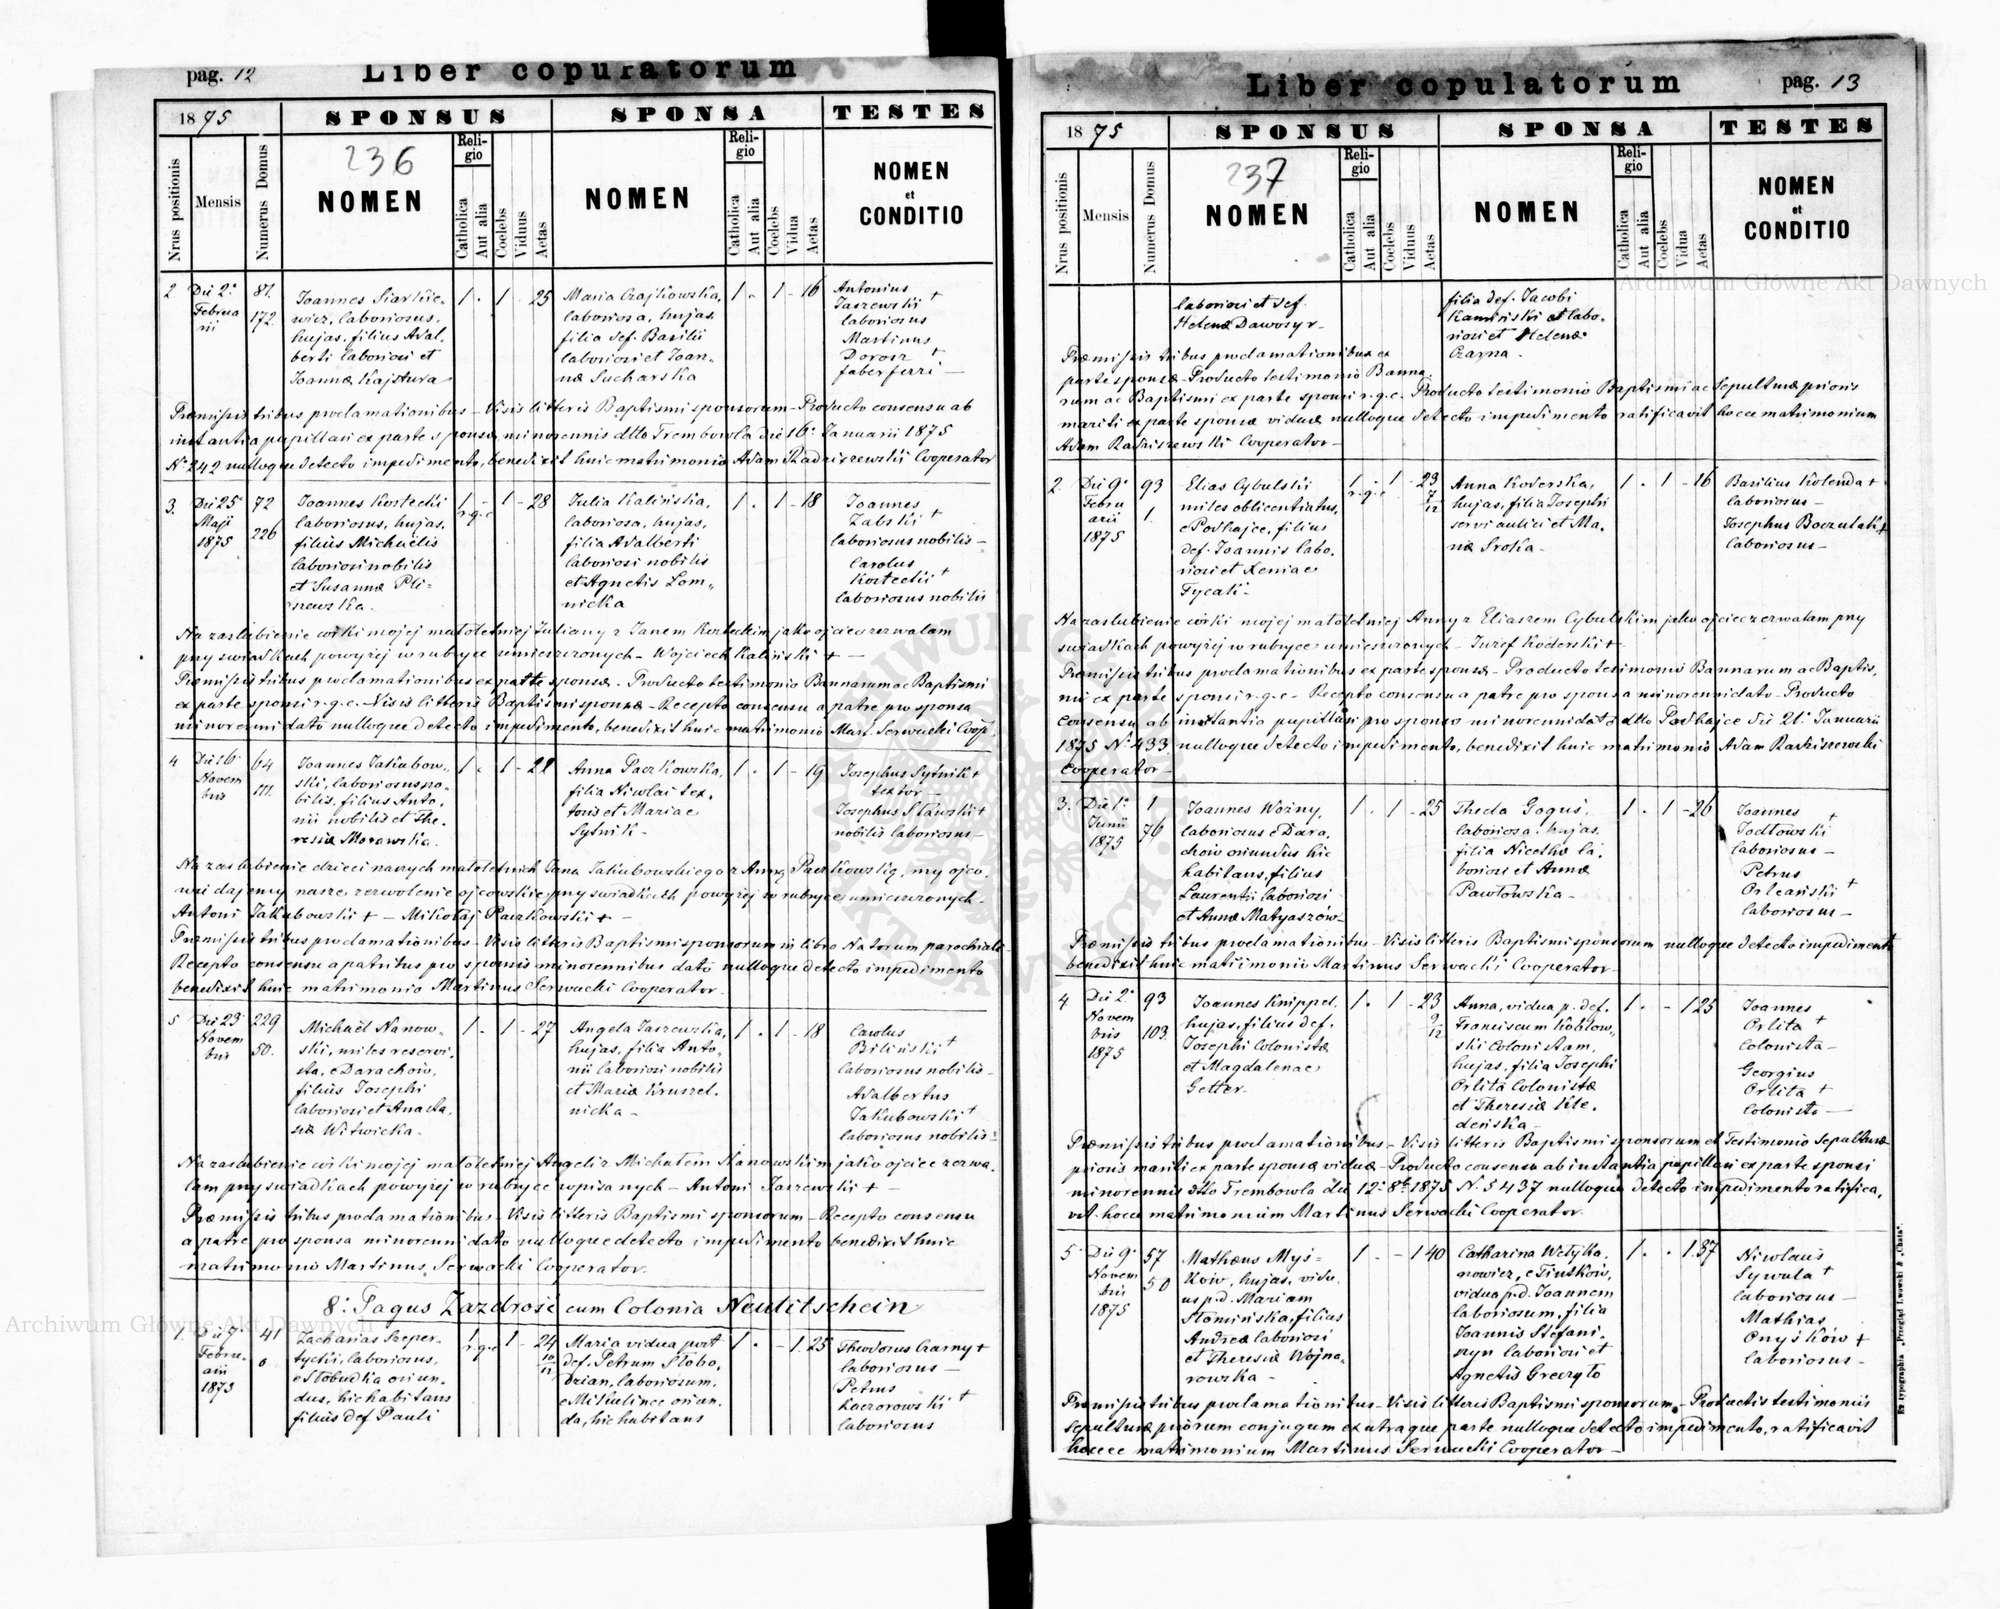 pag. 12
Liber copulatorum
18 75
SPONSUS
SPONSA
TESTES
Nrus positionis
Mensis
Numerus Domus
236
NOMEN
Religio
Catholica
Aut alia
Coelebs
Viduus
Aetas
NOMEN
Religio
Catholica
Aut alia
Coelebs
Vidua
Aetas
NOMEN
et
CONDITIO
2 Die 2ª 87. Joannes Siarkie- 1 . 1 - 25 Maria Czajkowska, 1 . 1 - 16 Antonius
Februa 172 wicz, laboriosus, laboriosa, hujas, Jaszewski +
rii hujas, filius Adal- filia def. Basilii laboriosus
berti laboriosi et laboriosi et Joan- Martinus
Joannæ Kajstura næ Sucharska Dorosz +
faber ferri —
Præmissis tribus proclamationibus – Visis litteris Baptismi sponsorum – Producto consensu ab
instantia pupillari ex parte sponsæ minorennis dtto Trembowla die 16ª Januarii 1875
Nº 242 nulloque detecto impedimento, benedixit huic matrimonio Adam Radziszewski Cooperator
3. Die 25 72 Joannes Kostecki 1 - 1 - 28 Julia Kalińska, 1 . 1 - 18 Joannes
Maji 226 laboriosus, hujas, r.g.c laboriosa, hujas, Zabski +
1875 filius Michaelis filia Adalberti laboriosus nobilis –
laboriosi nobilis laboriosi nobilis Carolus
et Susannæ Pli= et Agnetis Lom„ Kostecki +
newska. nicka laboriosus nobilis
Na zaslubienie córki mojej małoletniej Juliany z Janem Kosteckim jako ojciec zezwalam
przy swiadkach powyżej w rubryce umieszczonych – Wojciech Kaliński +
Præmissis tribus proclamationibus ex parte sponsæ. Producto testimonio Bannarum ac Baptismi
ex parte sponsi r.g.c. – Visis litteris Baptismi sponsæ – Recepto consensu a patre pro sponsa
minorenni dato nulloque detecto impedimento, benedixit huic matrimonio Mart. Serwacki Coop.
4 Die 16 64 Joannes Jakubow„ 1 . 1 - 21 Anna Paczkowska, 1 . 1 - 19 Josephus Sytnik +
Novem 111. ski, laboriosus no- filia Nicolai tex. textor –
bris bilis, filius Anto. toris et Mariae Josephus Stawski +
nii nobilis et The- Sytnik – nobilis laboriosus –
resiæ Morawska.
Na zaslubienie dzieci naszych małoletnich Jana Jakubowskiego z Anną Paczkowską, my ojco.
wie dajemy nasze zezwolenie ojcowskie przy swiadkach powyżej w rubryce umieszczonych –
Antoni Jakubowski + – Mikołaj Paczkowski + –
Præmissis tribus proclamationibus – Visis litteris Baptismi sponsorum in libro Natorum parochiali –
Recepto consensu a patribus pro sponsis minorennibus dato nulloque detecto impedimento
benedixit huic matrimonio Martinus Serwacki Cooperator.
5 Die 23 229 Michaël Nanow„ 1 . 1 - 27 Angela Jaszewska, 1 . 1 - 18 Carolus
Novem 50. ski, miles reservi. hujas, filia Anto„ Biliński +
bris sta, e Darachow, nii laboriosi nobilis laboriosus nobilis –
filius Josephi et Mariæ Kruszel. Adalbertus
laboriosi et Anasta. nicka – Jakubowski +
siæ Witwicka. laboriosus nobilis –
Na zaslubienie córki mojej małoletniej Angeli z Michałem Nanowskim jako ojciec zezwa.
lam przy swiadkach powyżej w rubryce wpisanych – Antoni Jaszewski + –
Præmissis tribus proclamationibus – Visis litteris Baptismi sponsorum – Recepto consensu
a patre pro sponsa minorenni dato nulloque detecto impedimento benedixit huic
matrimonio Martinus Serwacki Cooperator.
8: Pagus Zazdrość cum Colonia Neutitschein
1. Die 7ª 41 Zacharias Szeper- 1 - 1 - 24 Maria vidua post 1 . - 1. 25 Theodorus Czarny +
Febru. 0 tycki, laboriosus, r.g.c 10/12 def. Petrum Słobo„ laboriosus –
arii e Słobudka oriun- dzian, laboriosum, Petrus
1875 dus, hic habitans e Mikulince oriun. Kaczorowski +
filius def Pauli da, hic habitans laboriosus
Liber copulatorum
pag. 13
18 75
SPONSUS
SPONSA
TESTES
Nrus positionis
Mensis
Numerus Domus
237
NOMEN
Religio
Catholica
Aut alia
Coelebs
Viduus
Aetas
NOMEN
Religio
Catholica
Aut alia
Coelebs
Vidua
Aetas
NOMEN
et
CONDITIO
laboriosi et def. filia def. Jacobi
Helenæ Dawosyr – Kamiński et labo.
riosi et Helenæ
Czarna.
Præmissis tribus proclamationibus ex
parte sponsæ – Producto testimonio Banna.
rum ac Baptismi ex parte sponsi r.g.c. Producto testimonio Baptismi ac Sepulturæ prioris
mariti ex parte sponsæ viduæ nulloque detecto impedimento ratificavit hocce matrimonium
Adam Radziszewski Cooperator –
2. Die 9ª 93 Elias Cybulski 1 - 1 - 23 Anna Koderska, 1 . 1 - 16 Basilius Kolenda +
Febru 1. miles oblicentiatus, r.g.c 7/12 hujas, filia Josephi laboriosus –
arii e Podhajce, filius servi aulici et Ma. Josephus Boczulak +
1875 def. Joannis labo. næ Sroka – laboriosus –
riosi et Xeniae
Tycaki –
Na zaslubienie córki mojej małoletniej Anny z Eliaszem Cybulskim jako ojciec zezwalam przy
swiadkach powyżej w rubryce umieszczonych – Jozef Koderski +
Præmissis tribus proclamationibus ex parte sponsæ – Producto testimonio Bannarum ac Baptis.
mi ex parte sponsi r.g.c. – Recepto consensu a patre pro sponsa minorenni dato – Producto
consensu ab instantia pupillari pro sponso minorenni dato dtto Podhajce die 21ª Januarii
1875 Nº 433. nulloque detecto impedimento, benedixit huic matrimonio Adam Radziszewski
Cooperator –
3. Die 1ª 1 Joannes Woźny, 1 . 1 - 25 Thecla Goguś, 1 . 1 - 26 Joannes
Junii 76 laboriosus e Dara. laboriosa, hujas, Jodłowski +
1875 chow oriundus hic filia Nicetho la. laboriosus –
habitans, filius boriosi et Annæ Petrus
Laurentii laboriosi Pawłowska – Orleański +
et Annæ Matyaszów – laboriosus –
Præmissis tribus proclamationibus – Visis litteris Baptismi sponsorum nulloque detecto impedimento
benedixit huic matrimonio Martinus Serwacki Cooperator –
4 Die 2ª 93 Joannes Knippel, 1 . 1 - 23 Anna, vidua p. def. 1 . - 1 25 Joannes
Novem 103. hujas, filius def. 9/12 Franciscum Koblow„ Orlita +
bris Josephi Colonistæ ski Colonistam, Colonista –
1875 et Magdalenae hujas, filia Josephi Georgius
Getter – Orlita Colonistæ Orlita +
et Theresiæ Kle. Colonista –
deńska –
Præmissis tribus proclamationibus – Visis litteris Baptismi sponsorum et Testimonio Sepulturæ
prioris mariti ex parte sponsæ viduæ – Producto consensu ab instantia pupillari ex parte sponsi
minorennis dtto Trembowla die 12ª 8bris 1875 N. 5437 nulloque detecto impedimento ratifica.
vit hocce matrimonium Martinus Serwacki Cooperator.
5 Die 9ª 57 Mathæus Myś= 1 . - 1 40 Catharina Wełyka, 1 . . 1. 37 Nicolaus
Novem 50 ków, hujas, vidu. nowicz, e Tiutków, Sywula +
bris us p.d. Mariam vidua p.d. Joannem laboriosus –
1875 Słomińska, filius laboriosum, filia Mathias
Andreæ laboriosi Joannis Stefani. Onyśków +
et Theresiæ Wojna. szyn laboriosi et laboriosus –
rowska – Agnetis Greczyło
Præmissis tribus proclamationibus – Visis litteris Baptismi sponsorum – Productis testimoniis
sepulturæ priorum conjugum ex utraque parte nulloque detecto impedimento, ratificavit
hocce matrimonium Martinus Serwacki Cooperator –
Ex typographia „Przegląd Lwowski & Chata“.
Archiwum Główne Akt Dawnych
Archiwum Główne Akt Dawnych